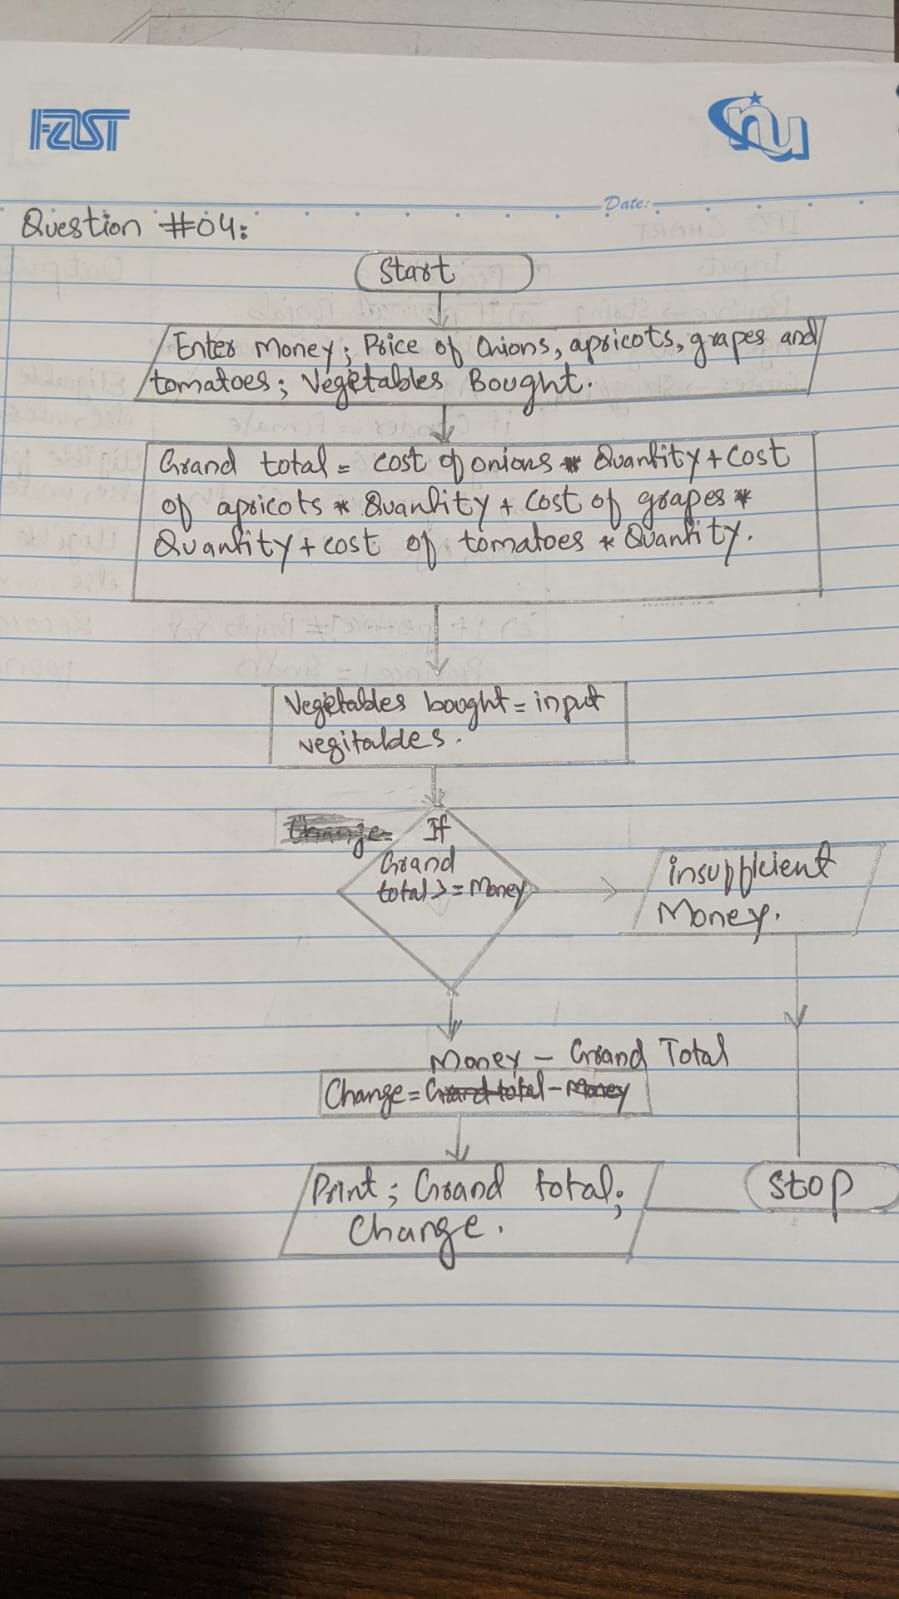 FAST
nu
Date:
Question #04:
Start
Enter Money; Price of Onions, apricots, grapes and
tomatoes; Vegetables Bought.
Grand total = cost of onions * Quantity + cost
of apricots * Quantity + cost of grapes *
Quantity + cost of tomatoes * Quantity.
Vegetables bought = input
vegitaldes.
Change=
If
Grand
total >= Money
insufficient
Money.
Money - Grand Total
Change = Grand total - Money
Print; Grand total;
Change.
Stop